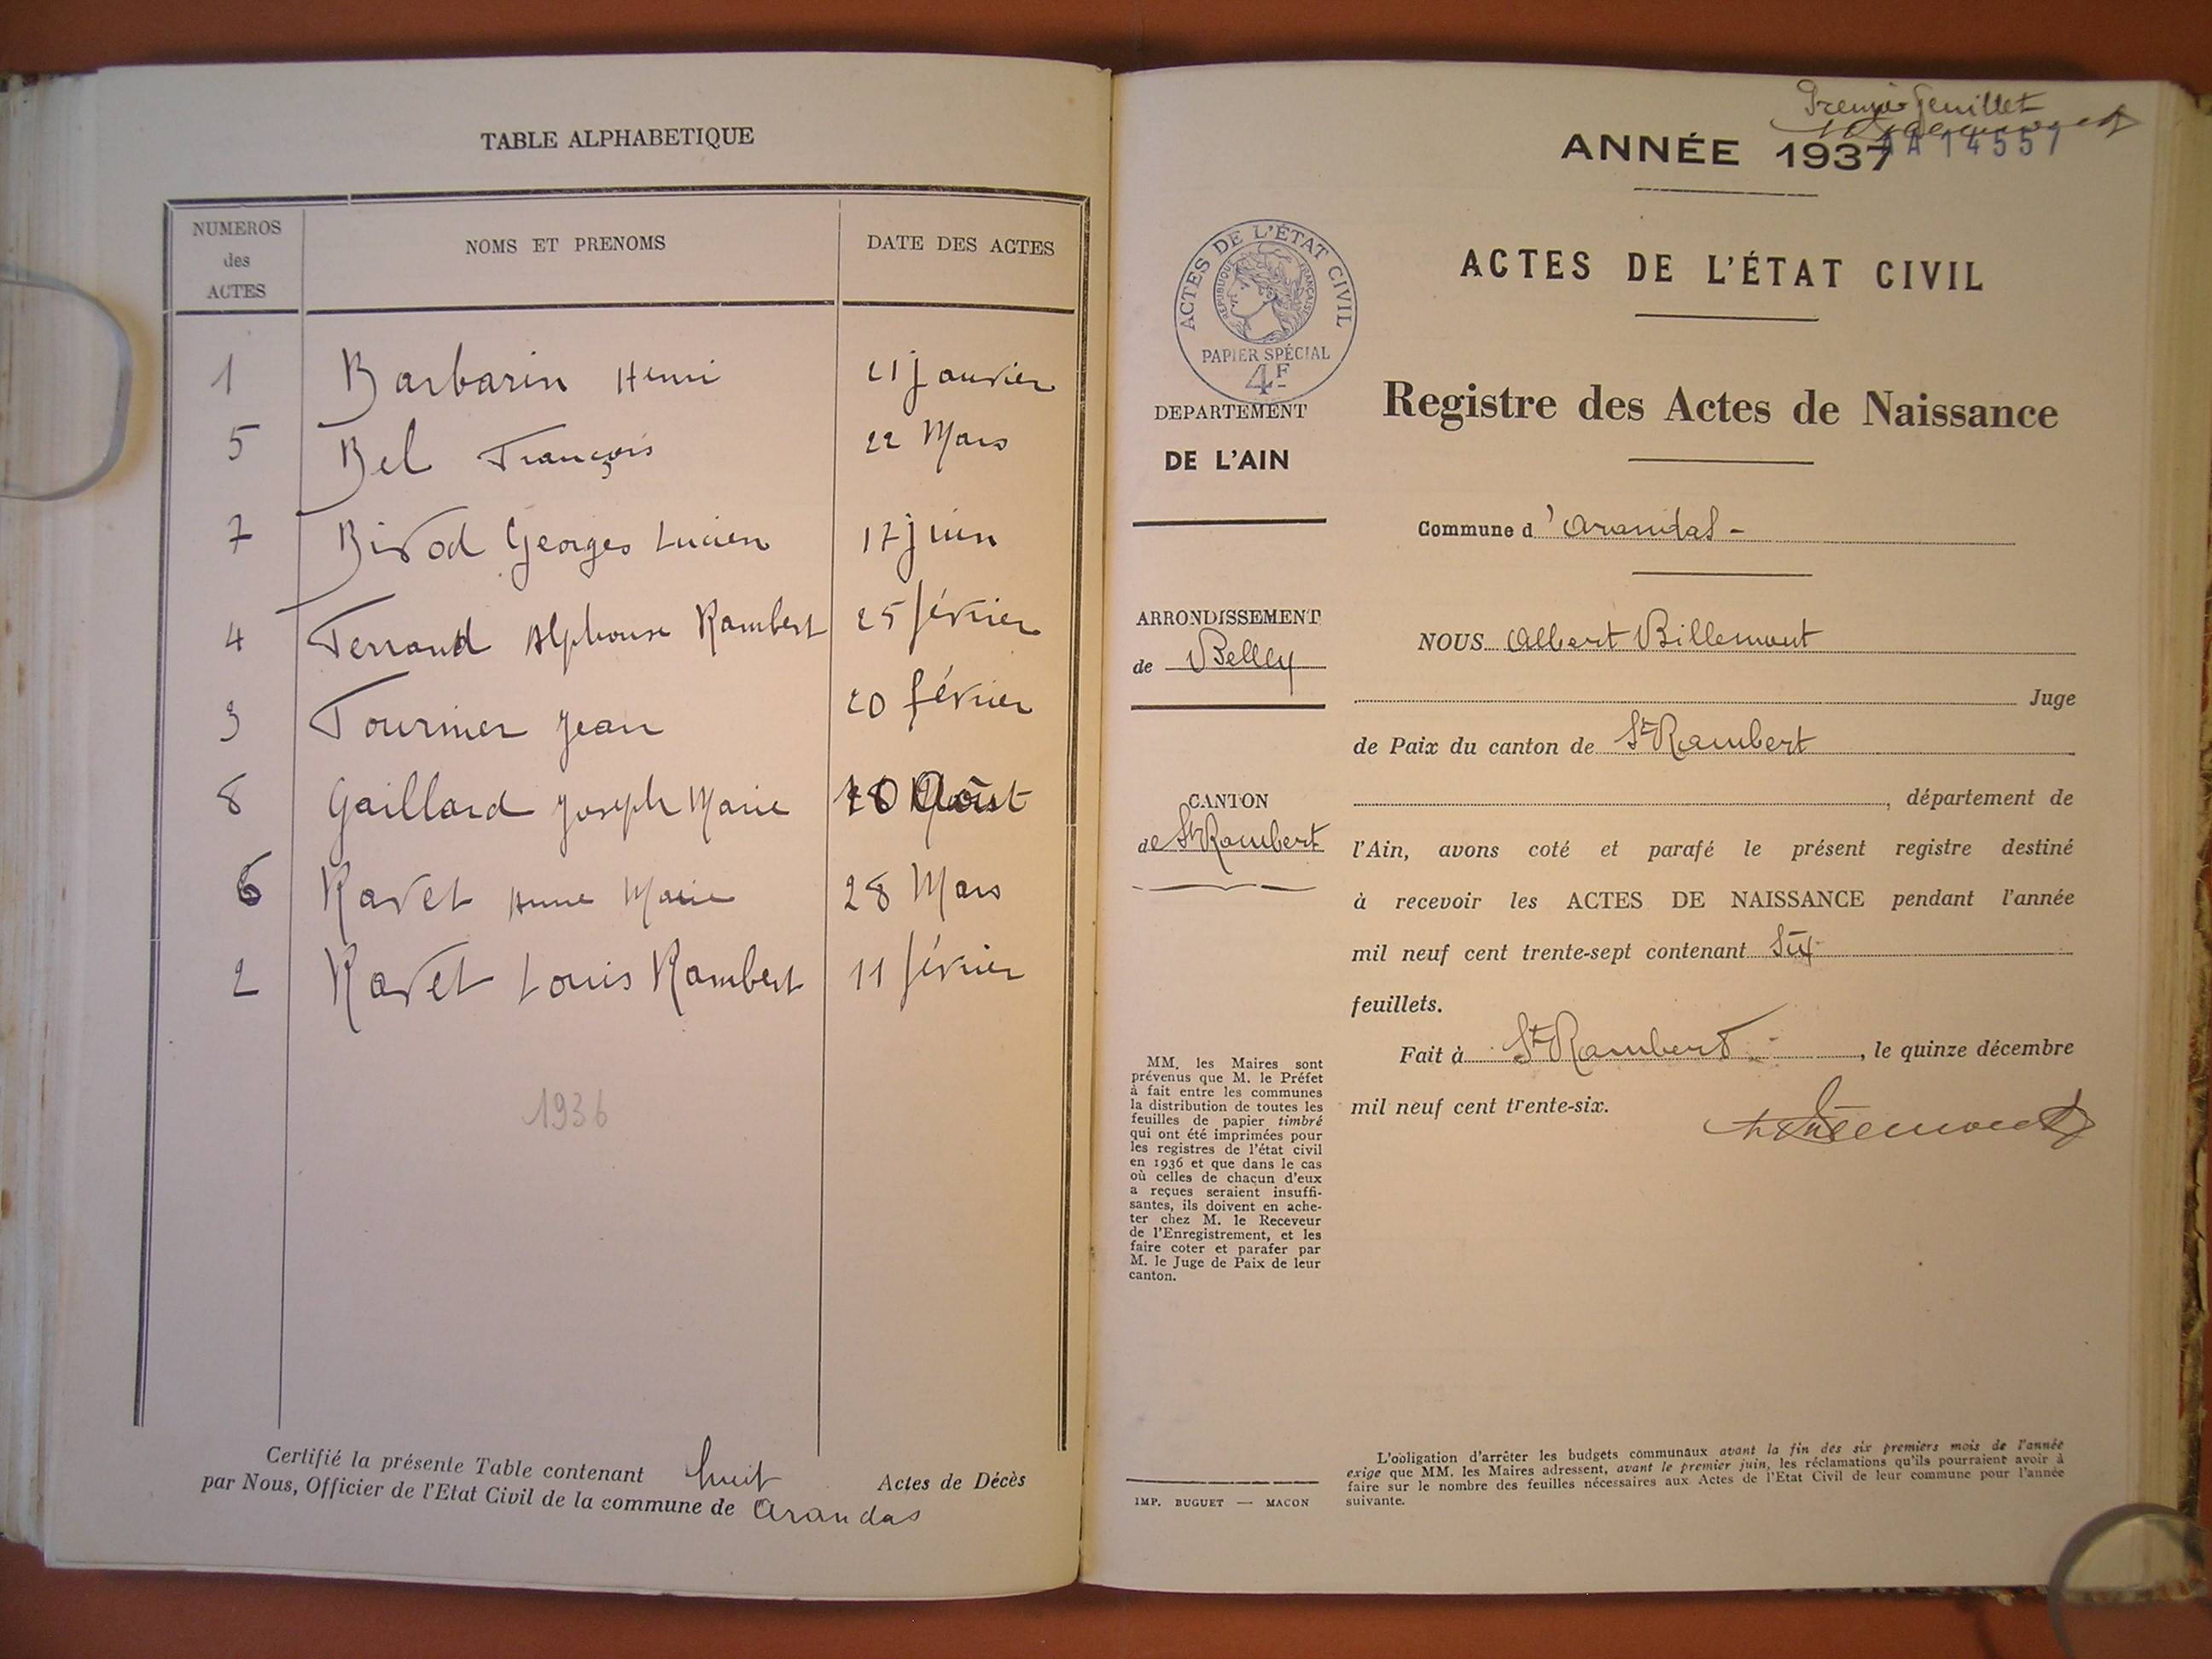 TABLE ALPHABETIQUE
NUMEROS des ACTES
NOMS ET PRENOMS
DATE DES ACTES
1 Barbarin Henri 21 Janvier
5 Bel François 22 Mars
7 Bivod Georges Lucien 17 juin
4 Ferrand Alphonse Rambert 25 février
3 Fournier Jean 20 février
8 Gaillard Joseph Marie Août
6 Ravet Anne Marie 28 Mars
2 Ravet Louis Rambert 11 février
1936
Certifié la présente Table contenant huit Actes de Décès
par Nous, Officier de l'Etat Civil de la commune de Arandas
Premier feuillet
AA 14557
ANNÉE 1937
ACTES DE L'ÉTAT CIVIL
ACTES DE L'ÉTAT CIVIL
RÉPUBLIQUE FRANÇAISE
PAPIER SPÉCIAL
4F
DEPARTEMENT
DE L'AIN
Registre des Actes de Naissance
Commune d'Arandas -
ARRONDISSEMENT
de Belley
NOUS Albert Billemont
Juge
de Paix du canton de St Rambert
CANTON
de St Rambert
, département de
l'Ain, avons coté et parafé le présent registre destiné
à recevoir les ACTES DE NAISSANCE pendant l'année
mil neuf cent trente-sept contenant Six
feuillets.
Fait à St Rambert, le quinze décembre
mil neuf cent trente-six.
MM, les Maires sont
prévenus que M. le Préfet
à fait entre les communes
la distribution de toutes les
feuilles de papier timbré
qui ont été imprimées pour
les registres de l'état civil
en 1936 et que dans le cas
où celles de chacun d'eux
a reçues seraient insuffi-
santes, ils doivent en ache-
ter chez M. le Receveur
de l'Enregistrement, et les
faire coter et parafer par
M. le Juge de Paix de leur
canton.
IMP. BUGUET — MACON
L'obligation d'arrêter les budgets communaux avant la fin des six premiers mois de l'année
exige que MM. les Maires adressent, avant le premier juin, les réclamations qu'ils pourraient avoir à
faire sur le nombre des feuilles nécessaires aux Actes de l'Etat Civil de leur commune pour l'année
suivante.